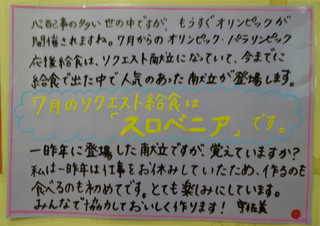 心配事の多い世の中ですが、もうすぐオリンピックが
開催されますね。7月からのオリンピック・パラリンピック
応援給食は、リクエスト献立になっていて、今までに
給食で出た中で人気のあった献立が登場します。
7月のリクエスト給食は
「スロベニア」です。
一昨年に登場した献立ですが、覚えていますか?
私は一昨年は仕事をお休みしていたため、作るのも
食べるのもはじめてです。とても楽しみにしています。
みんなで協力しておいしく作ります! 宇佐美